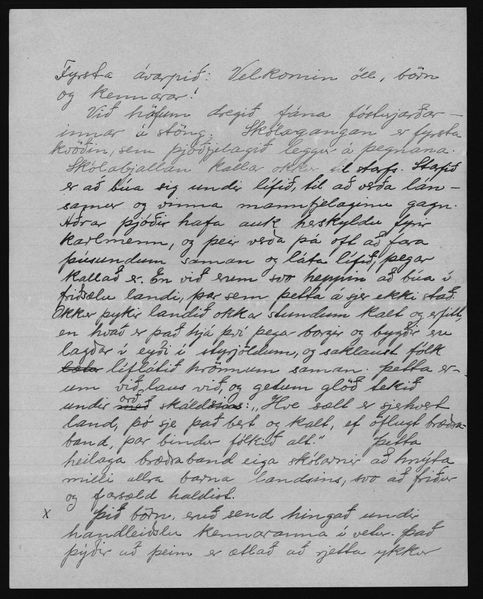 Fyrsta ávarpið: Velkomin öll, börn
og kennarar!
Við höfum dregið fána fósturjarðar-
innar á stöng. Skólagangan er fyrsta
kvöðin, sem þjóðfjelagið leggur á þegnana.
Skólabjallan kallar okkur til starfs. Starfið
er að búa sig undir lífið, til að verða lán-
samur og vinna mannfjelaginu gagn.
Aðrar þjóðir hafa auk herskyldu fyrir
karlmenn, og þeir verða þá oft að fara
þúsundum saman og láta lífið, þegar
kallað er. En við erum svo heppin að búa í
friðsælu landi, þar sem þetta á sjer ekki stað.
Okkur þykir landið okkar stundum kalt og erfitt
en hvað er það hjá því þegar borgir og bygðir eru
lagðar í eyði í styrjöldum, og saklaust fólk
líflátið hrönnum saman. Þetta er-
um við laus við, og getum glöð tekið
undir orð skáldsins: „Hve sælt er sjerhvert
land, þó sje það bert og kalt, ef öflugt bræðra-
band, þar bindur fólkið alt." Þetta
heilaga bræðraband eiga skólarnir að hnýta
milli allra barna landsins, svo að friður
og farsæld haldist.
x Þið börn, eruð send hingað undir
handleiðslu kennaranna í vetur. Það
þýðir að þeim er ætlað að rjetta ykkur